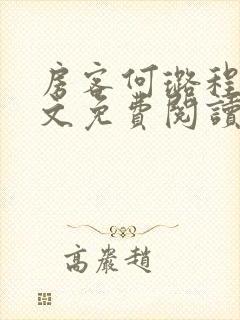 房客何璐程
文免費閱讀
高嚴趙